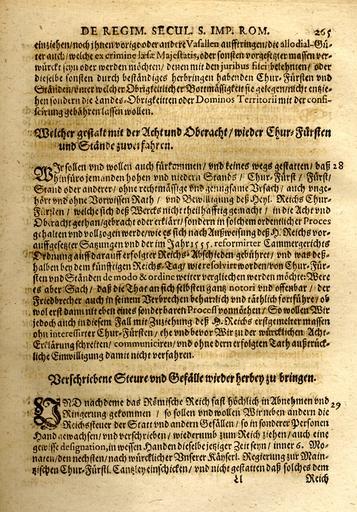 DE REGIM. SECUL. S. IMP. ROM. 265
einziehen/noch ihnen vorige oder andere Vasallen aufftringen/die allodial-Gü-
ter auch/welche ex crimine læsæ Majestatis, oder sonsten vorgesetzter massen ver-
würckt seyn oder werden möchten/denen mit den juribus fisci belehnten/oder
dieselbe sonsten durch beständiges herbringen habenden Chur-Fürsten und
Ständen/unter welcher Obrigkeitlicher Bottmässigkeit sie gelegen/nicht entzie-
hen sondern die Landes-Obrigkeiten oder Dominos Territorii mit der confi-
scirung gebähren lassen wollen.
Welcher gestalt mit der Acht und Oberacht/wieder Chur-Fürsten
und Stände zuverfahren.
Wir sollen und wollen auch fürkommen/und keines wegs gestatten/daß 28
hinfüro jemanden hohen und niedern Stands/Chur-Fürst/Fürst/
Stand oder anderer/ohne rechtmässige und genugsame Ursach/auch unge-
hört und ohne Vorwissen Rath/und Bewilligung deß Heyl. Reichs Chur-
Fürsten/welche sich deß Wercks nicht theilhafftig gemacht/in die Acht und
Oberacht gethan/gebracht oder erklärt/sondern in solchem ordentlicher Proces
gehalten und vollzogen werde/wie es sich nach Außweisung deß H. Reichs vor-
auffgesetzter Satzungen und der im Jahr 1555. reformirter Cammergerichts
Ordnung auff darauff erfolgter Reichs-Abschieden gebühret/und was deß-
halben bey dem künfftigen Reichs-Tag/wie resolvirt worden/von Chur-Für-
sten und Ständen de modo & ordine weiter verglichen werden möchte. Were
es aber Sach/daß die That an sich selbsten gantz notori und offenbar/der
Friedbrecher auch in seinem Verbrechen beharrlich und täthlich fortführe/ob
wol erst dann mit eben eines sonderbaren Process vonnöthen/So wollen Wir
jedoch auch in diesem Fall mit Zuziehung deß H. Reichs erstgemelter massen
ohninteressirter Chur-Fürsten/ehe und bevor Wir zu der würcklichen Achts-
Erklärung schreiten/communiciren/und ohne dern erfolgten Rath außtrück-
liche Einwilligung damit nicht verfahren.
Verschriebene Steure und Gefälle wieder herbey zu bringen.
UND nachdeme das Römische Reich fast höchlich in Abnehmen und 29
Ringerung gekommen/so sollen und wollen Wir neben andern die
Reichssteuer der Statt und andern Gefällen/so in sonderer Personen
Hand gewachsen/und verschrieben/wiederumb zum Reich ziehen/auch eine
gewisse designation, in wessen Handen dieselbe jetziger Zeit seyn/inner 6. Mo-
naten/den nechsten/nach würcklicher Unserer Käyserl. Regierung zur Main-
tzischen Chur-Fürstl. Cantzley einschicken/und nicht gestatten daß solches dem
Ll Reich